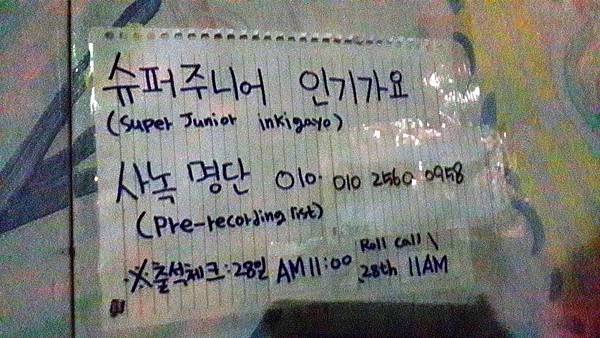 슈퍼주니어 인기가요
(Super Junior inkigayo)
사녹 명단 010. 010 2560 0958
(Pre-recording list)
※출석체크:28일 AM 11:00 Roll Call \
28th 11AM